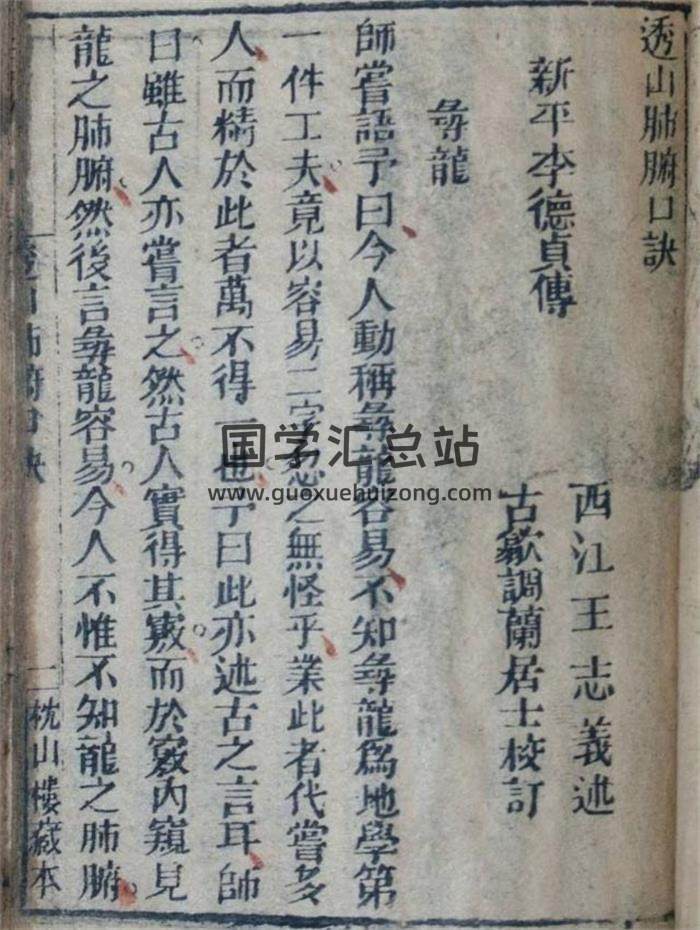 透山肺腑口訣
西江王志義述
新平李德貞傳
古歙調蘭居士校訂
尋龍
師嘗語予曰今人動稱尋龍容易不知尋龍爲地學第
一件工夫竟以容易二字忽之無怪乎業此者代嘗多
人而精於此者萬不得一也予曰此亦述古之言耳師
曰雖古人亦嘗言之然古人實得其竅而於竅內窺見
龍之肺腑然後言尋龍容易今人不惟不知龍之肺腑
透山肺腑口訣
枕山樓藏本
国学汇总站
www.guoxuehuizong.com